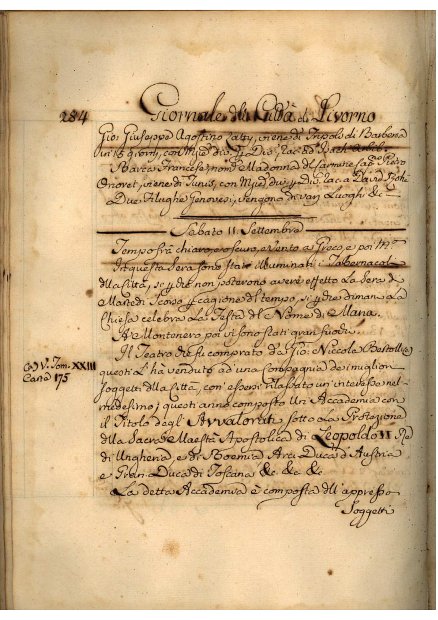 284 Giornale della Città di Livorno
Gio: Giuseppe Agostino viene di Tripoli di Barberia
in 15 giorni, con
Barca Francese nom: Madonna del Carmine Cap: Pietro
Onoret, viene di Tunis, con
Due Genovesi, vengono di varj Luoghi &c
Sabato 11. Settembre
Tempo frà chiaro, e oscuro, e Vento a Greco, e poi M.o
In questa sera sono state illuminati i Tabernacoli
della Città, se q.do non poterono avere effetto la sera di
Martedì Scorso p cagione del tempo, dimani la
Chiesa celebra la Festa del Nome di Maria.
A Montenero poi si sono stati gran fuochi.
(a) V. Tom. XXIII
Carta 175
Il Teatro che fu comprato da Gio: Niccola Bertolli
questi l'hà venduto ad una Compagnia de i migliori
Soggetti della Città, con essersi rilasciato un interesso nel
medesimo; questi anno composto un Accademia con
il Titolo degl' Avvalorati sotto la Protezione
della Sacra Maestà Apostolica di Leopoldo II Rè
di Ungheria, e di Boemia Arci Duca d'Austria
e Gran Duca di Toscana &c &c &c
La detta Accademia è composta dell'appresso
Soggetti